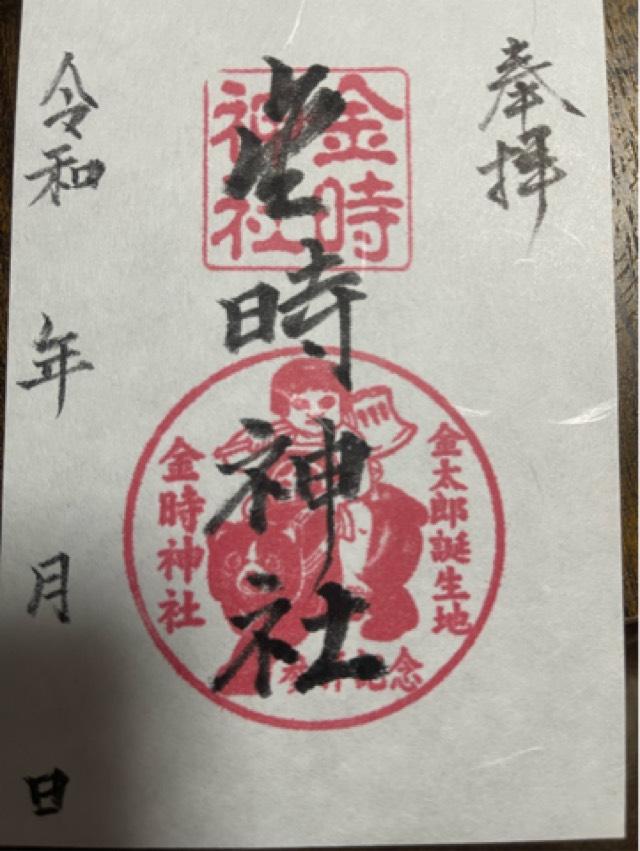 奉拝
金時
神社
金時神社
金太郎誕生地
金時神社
参拝記念
令和 年 月 日